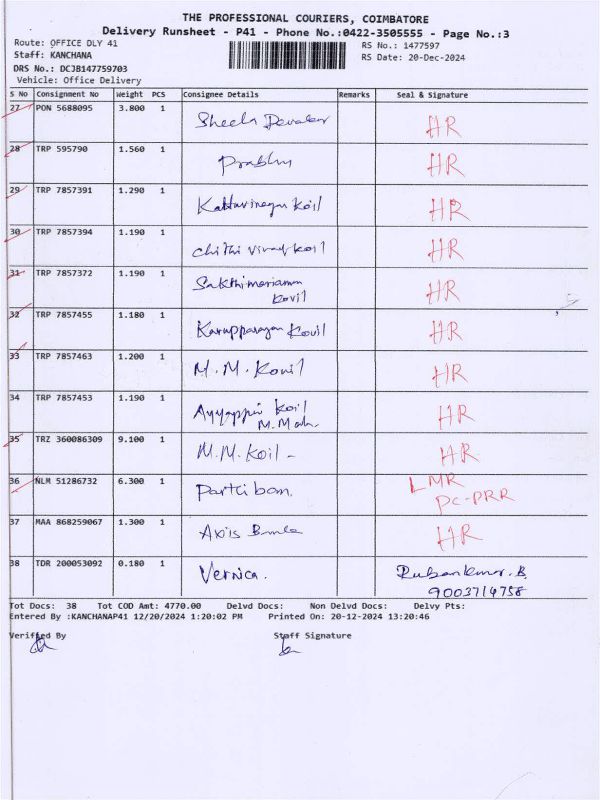 THE PROFESSIONAL COURIERS, COIMBATORE
Delivery Runsheet - P41 - Phone No.:0422-3505555 - Page No.:3
Route: OFFICE DLY 41 RS No.: 1477597
Staff: KANCHANA RS Date: 20-Dec-2024
DRS No.: DCJB147759703
Vehicle: Office Delivery
S No Consignment No Weight PCS Consignee Details Remarks Seal & Signature
27 PON 5688095 3.800 1 Sheela HR
28 TRP 595790 1.560 1 Prabhu HR
29 TRP 7857391 1.290 1 Koil HR
30 TRP 7857394 1.190 1 Chithi Vinay koil HR
31 TRP 7857372 1.190 1 Sakthimariamman HR
Kovil
32 TRP 7857455 1.180 1 Karupparayan Kovil HR
33 TRP 7857463 1.200 1 M.M. Kovil HR
34 TRP 7857453 1.190 1 Ayyappan Koil HR
M.M
35 TRZ 360086309 9.100 1 M.M. Koil - HR
36 NLM 51286732 6.300 1 Parthiban. LMR
PC-PRR
37 MAA 868259067 1.300 1 Axis HR
38 TDR 200053092 0.180 1 Vernica. Rubankumar.B.
9003714758
Tot Docs: 38 Tot COD Amt: 4770.00 Delvd Docs: Non Delvd Docs: Delvy Pts:
Entered By :KANCHANAP41 12/20/2024 1:20:02 PM Printed On: 20-12-2024 13:20:46
Verified By Staff Signature